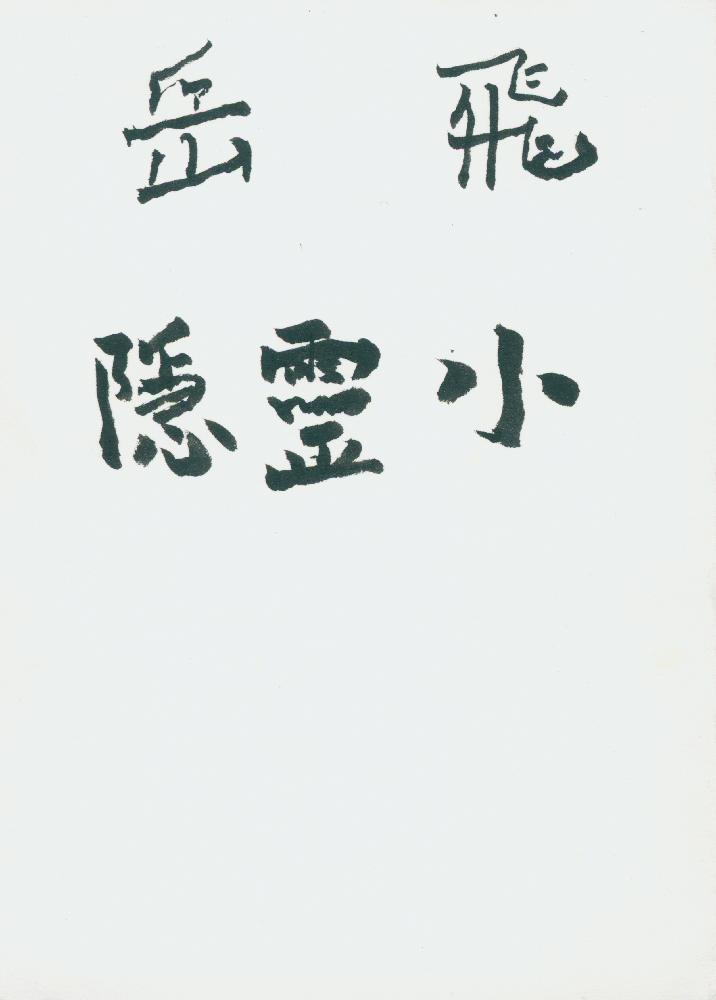 飛岳
小靈隱